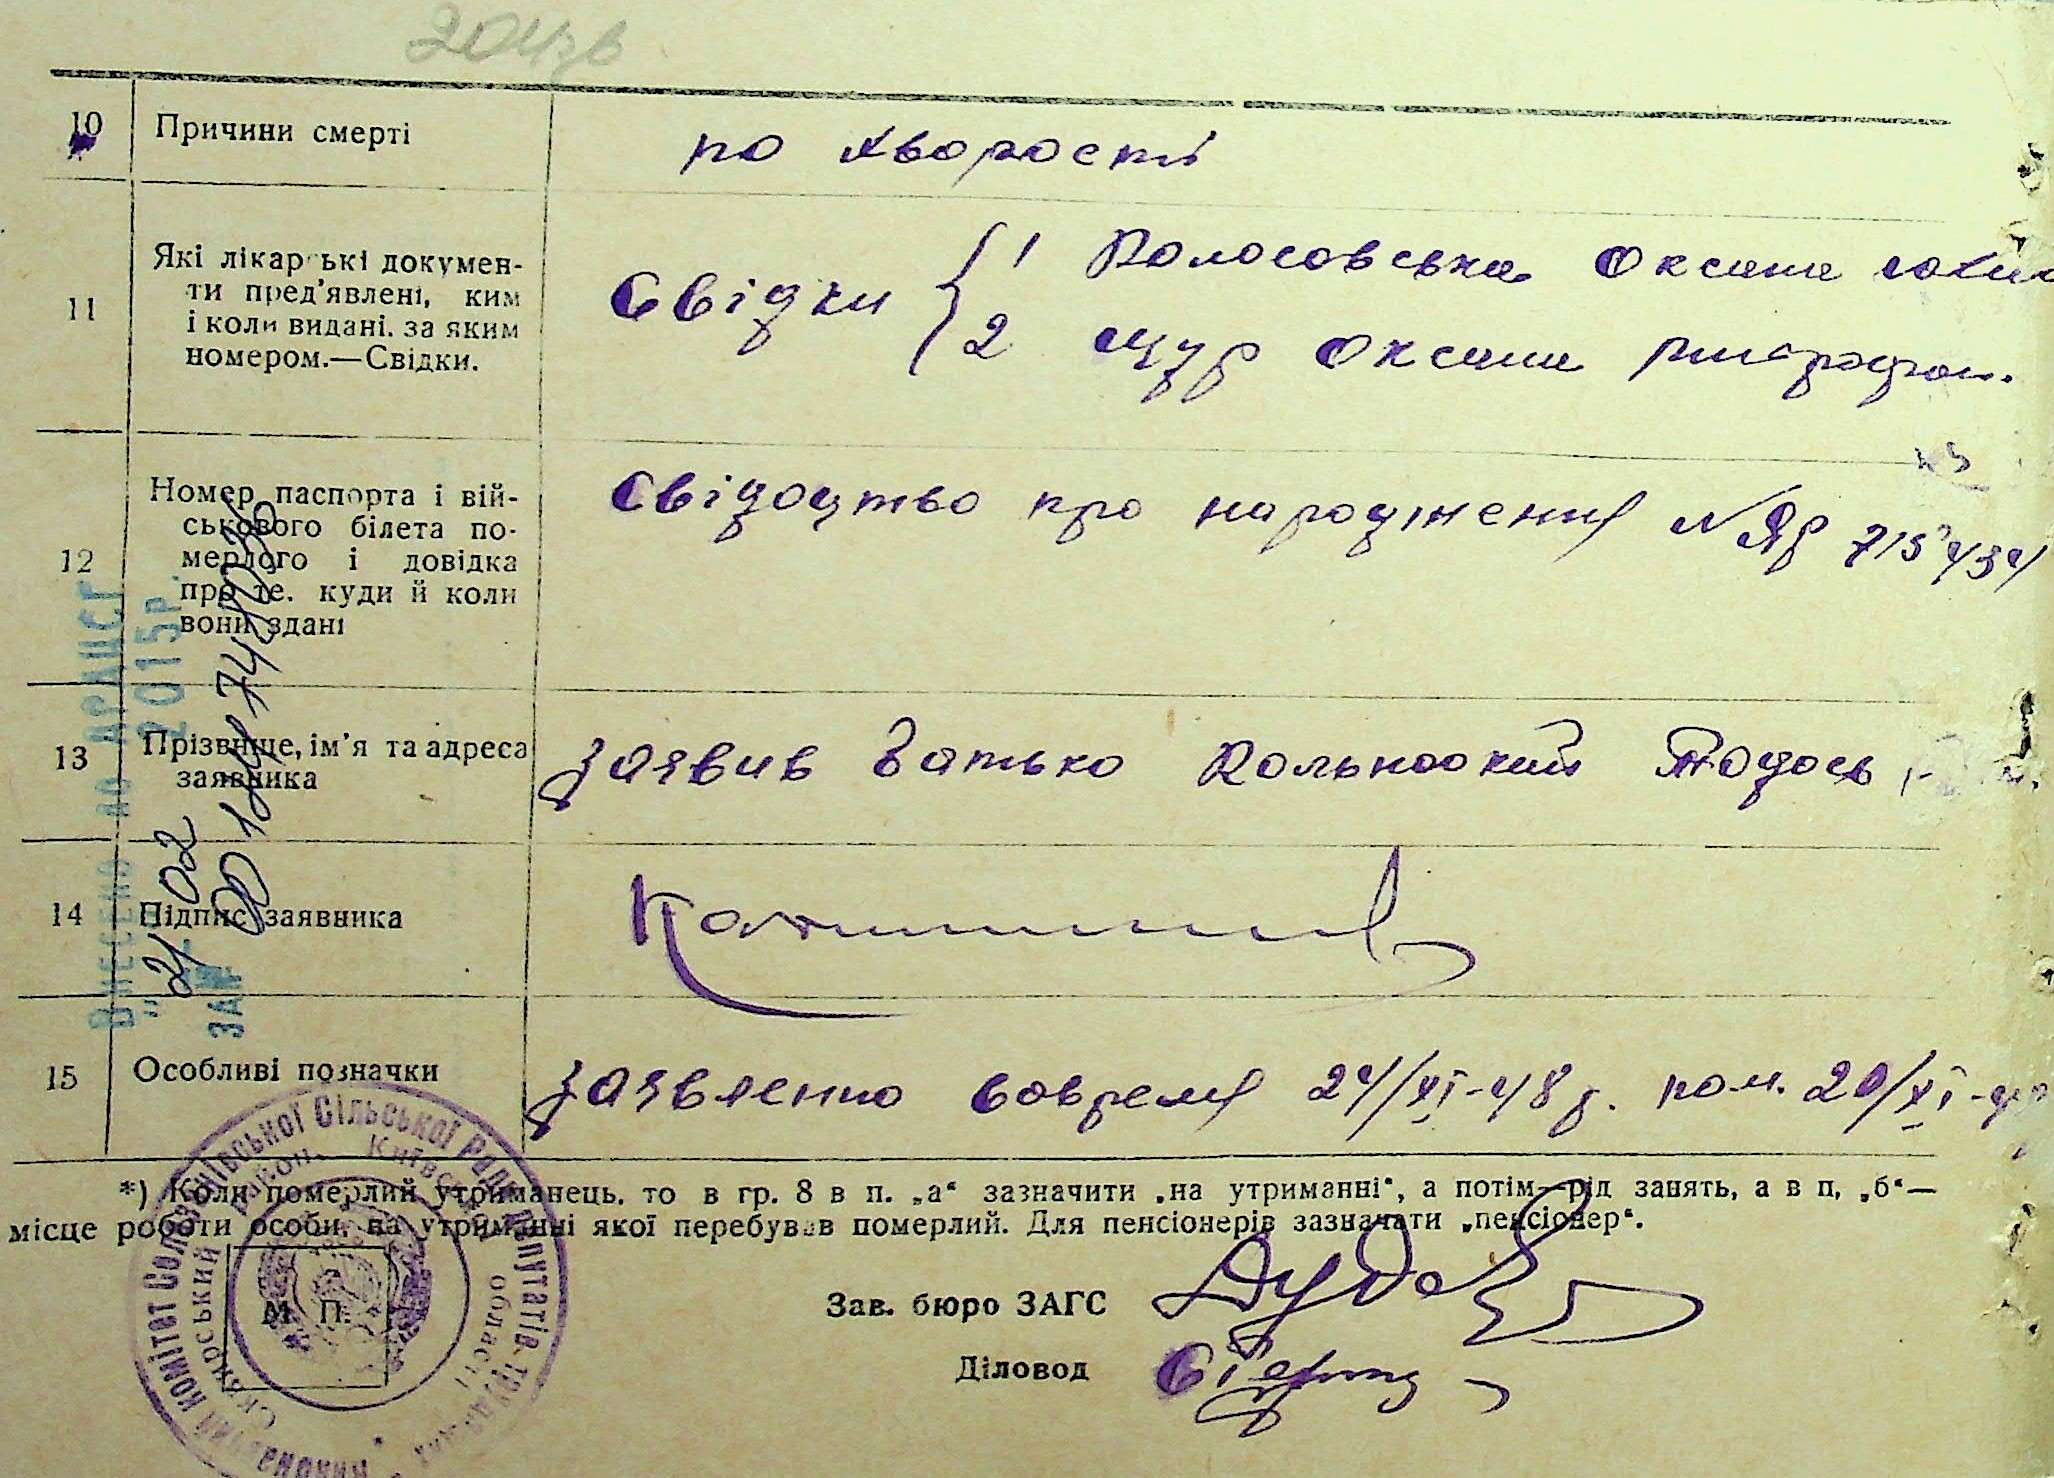 204зв
10 Причини смерті по хворості
11 Які лікарські докумен-
ти пред'явлені, ким
і коли видані. за яким
номером.—Свідки.
Свідки { 1 Колосовська Оксана
2 Щур Оксана
12 Номер паспорта і вій-
ськового білета по-
мерлого і довідка
про те. куди й коли
вони здані
Свідоцтво про народження № Яр 715434
13 Прізвище, ім'я та адреса
заявника
Заявив батько Тодось
14 Підпис заявника
15 Особливі позначки Заявленно вовремя 24/XI-48 р. пом. 20/XI-
*) Коли померлий утриманець. то в гр. 8 в п. „а“ зазначити „на утриманні“, а потім—рід занять, а в п, „б“—
місце роботи особи, на утриманні якої перебував померлий. Для пенсіонерів зазначати „пенсіонер“.
М. П.
Зав. бюро ЗАГС
Діловод
Внесено до ДРАЦСГ
"21" 02 2015р.
ЗА №
Комітет Сільської Ради депутатів трудящих
Сквирський район. Київської області